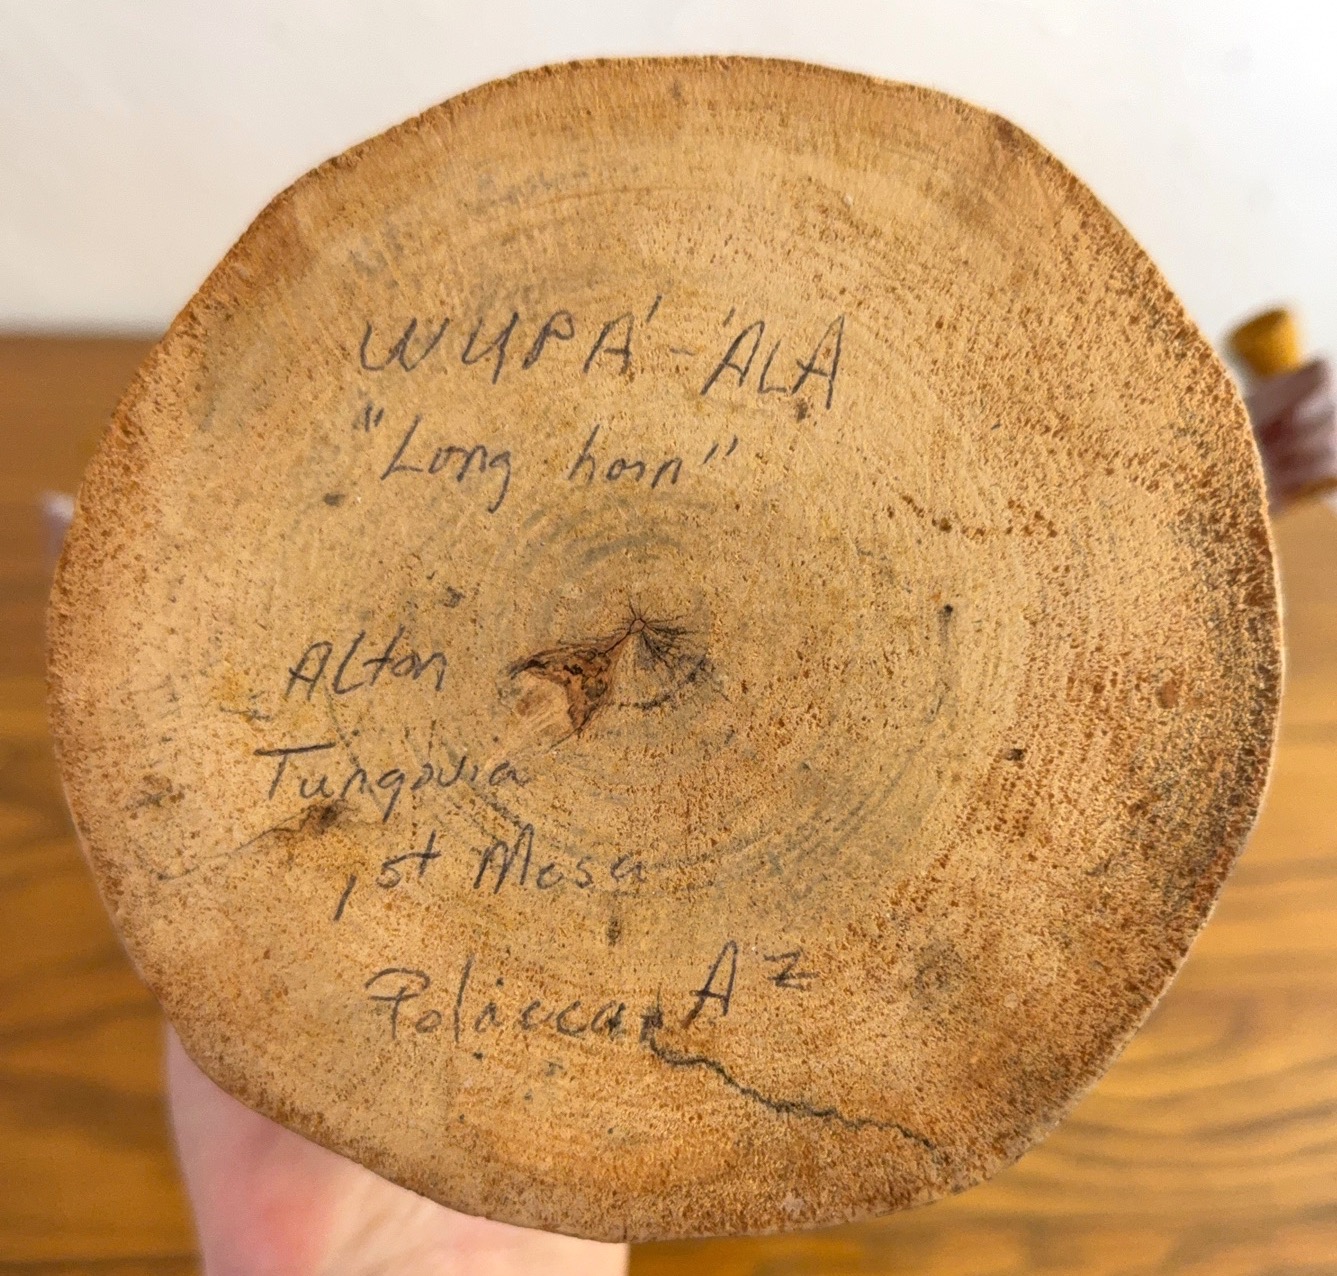 WUPA'-'ALA
"Long horn"
Alton
Tungovia
1st Mesa
Polacca, AZ